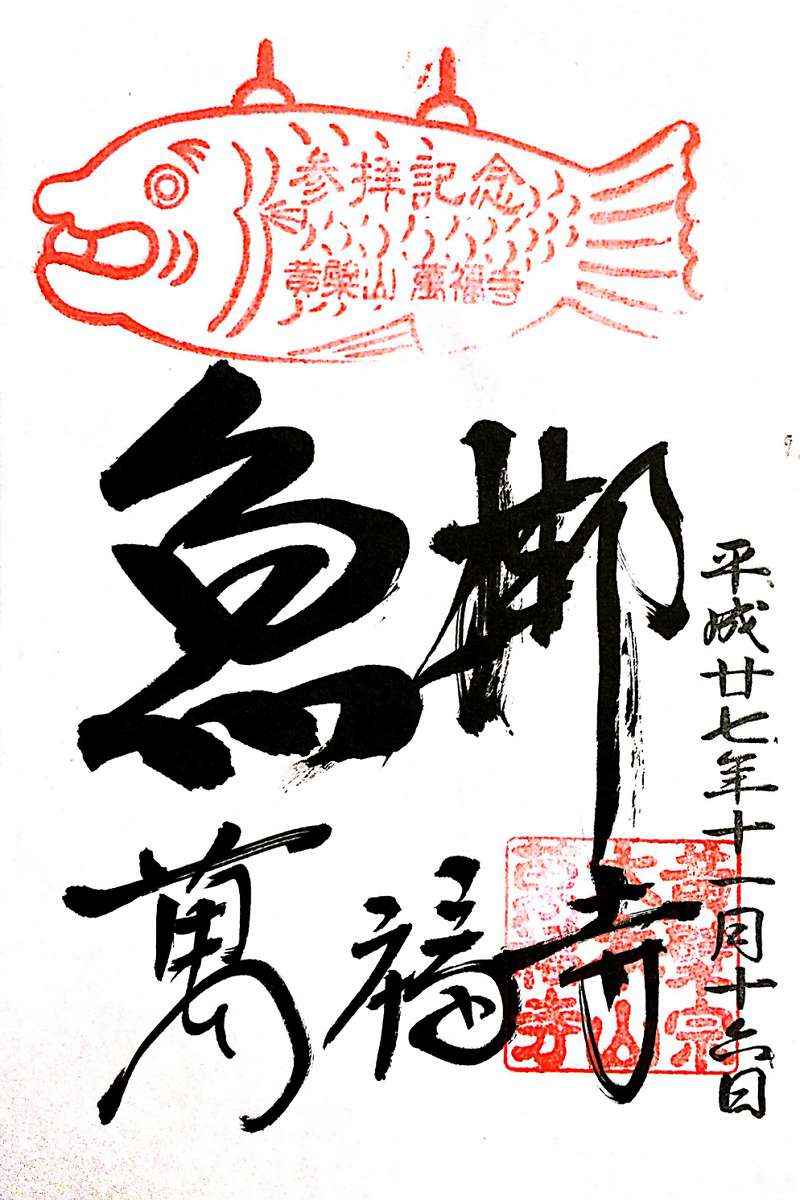 参拝記念
黄檗山 萬福寺
魚梆
萬福寺
平成廿七年十一月十六日
黄檗宗
大本山
萬福寺